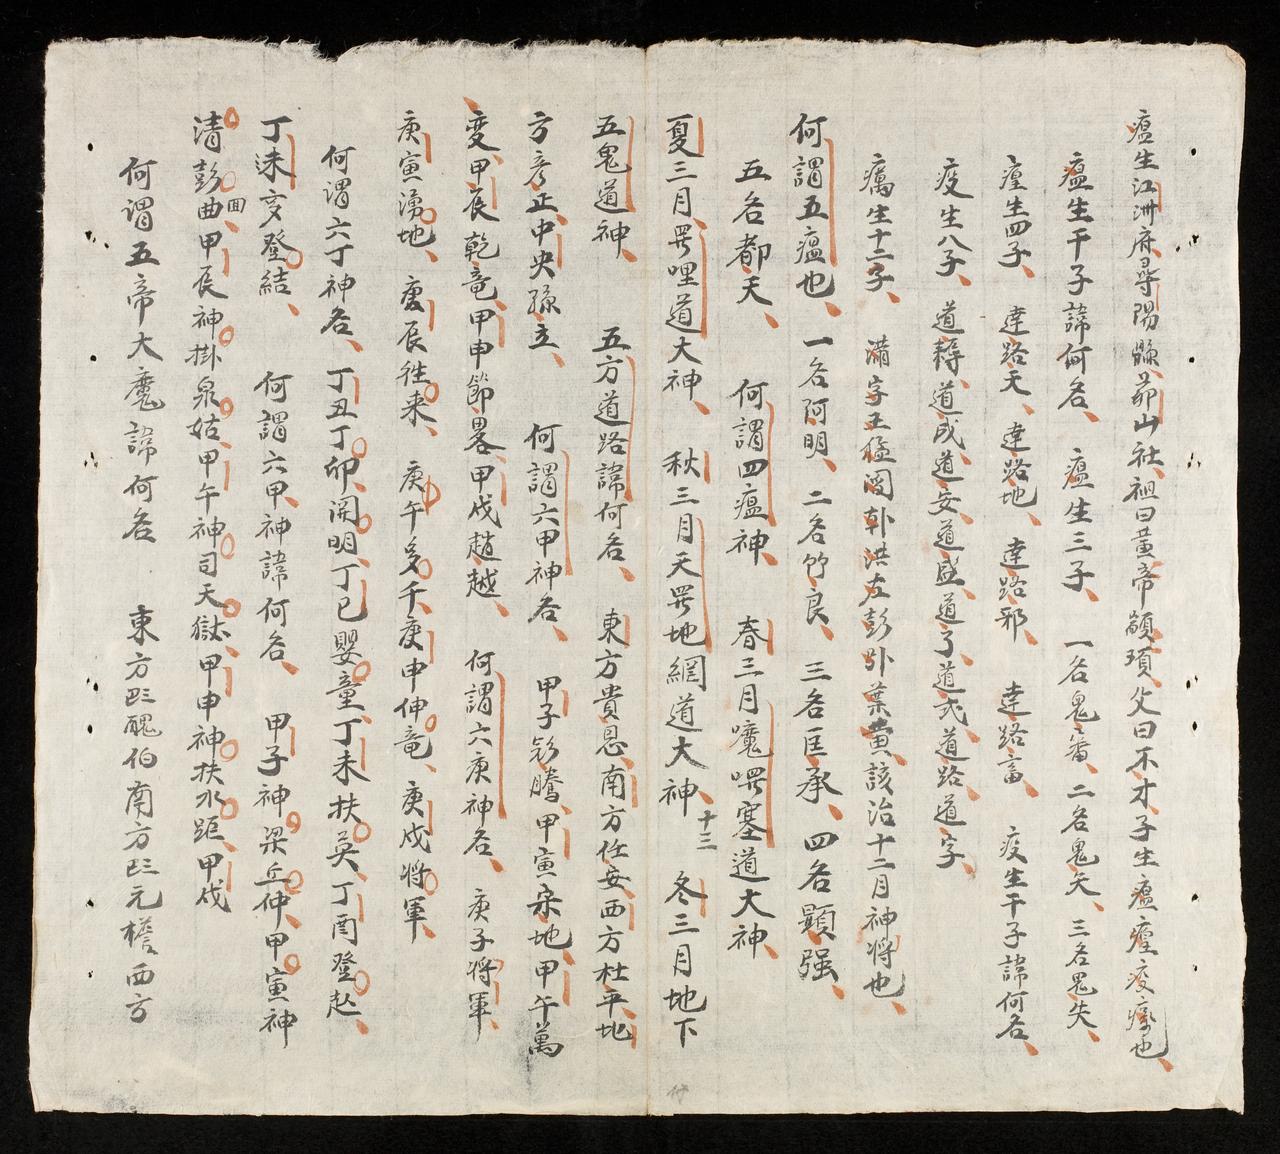 瘟生江洲府尋陽縣茆山社、祖曰黃帝顓頊、父曰不才、子生瘟瘽疫癘也、
瘟生千子諱何名、瘟生三子、一名鬼畨、二名鬼天、三名鬼失、
瘽生四子、達路天、達路地、達路邪、達路畜、疫生千子諱何名、
疫生八子、道耨、道成、道安、道盛、道了、道弐、道路、道字、
癘生十二子、潘字王猛閻卦洪左彭卦葉黄、該治十二月神將也、
何謂五瘟也、一名阿明、二名竹良、三名匡承、四名顯强、
五名都天、何謂四瘟神、春三月魔喂塞道大神、
夏三月、罗哩道大神、秋三月天罗地網道大神、冬三月地下
十三
五鬼道神、五方道路諱何名、東方貴恩、南方任安、西方杜平、北
方彦正、中央孫立、何謂六甲神名、甲子彭騰、甲寅宋地、甲午萬
变、甲辰乾竜、甲申節畧、甲戌趙越、何謂六庚神名、庚子將軍、
庚寅湧地、庚辰徃来、庚午多千、庚申伸竜、庚戌將軍、
何謂六丁神名、丁丑丁卯開明、丁巳嬰童、丁未扶英、丁酉登起、
丁未亥登結、何謂六甲神諱何名、甲子神梁丘仲、甲寅神
清彭曲、甲辰神掛泉姑、甲午神司天獄、甲申神扶水距、甲戌
面
何謂五帝大魔諱何名 東方巴醜伯南方巴元檐西方